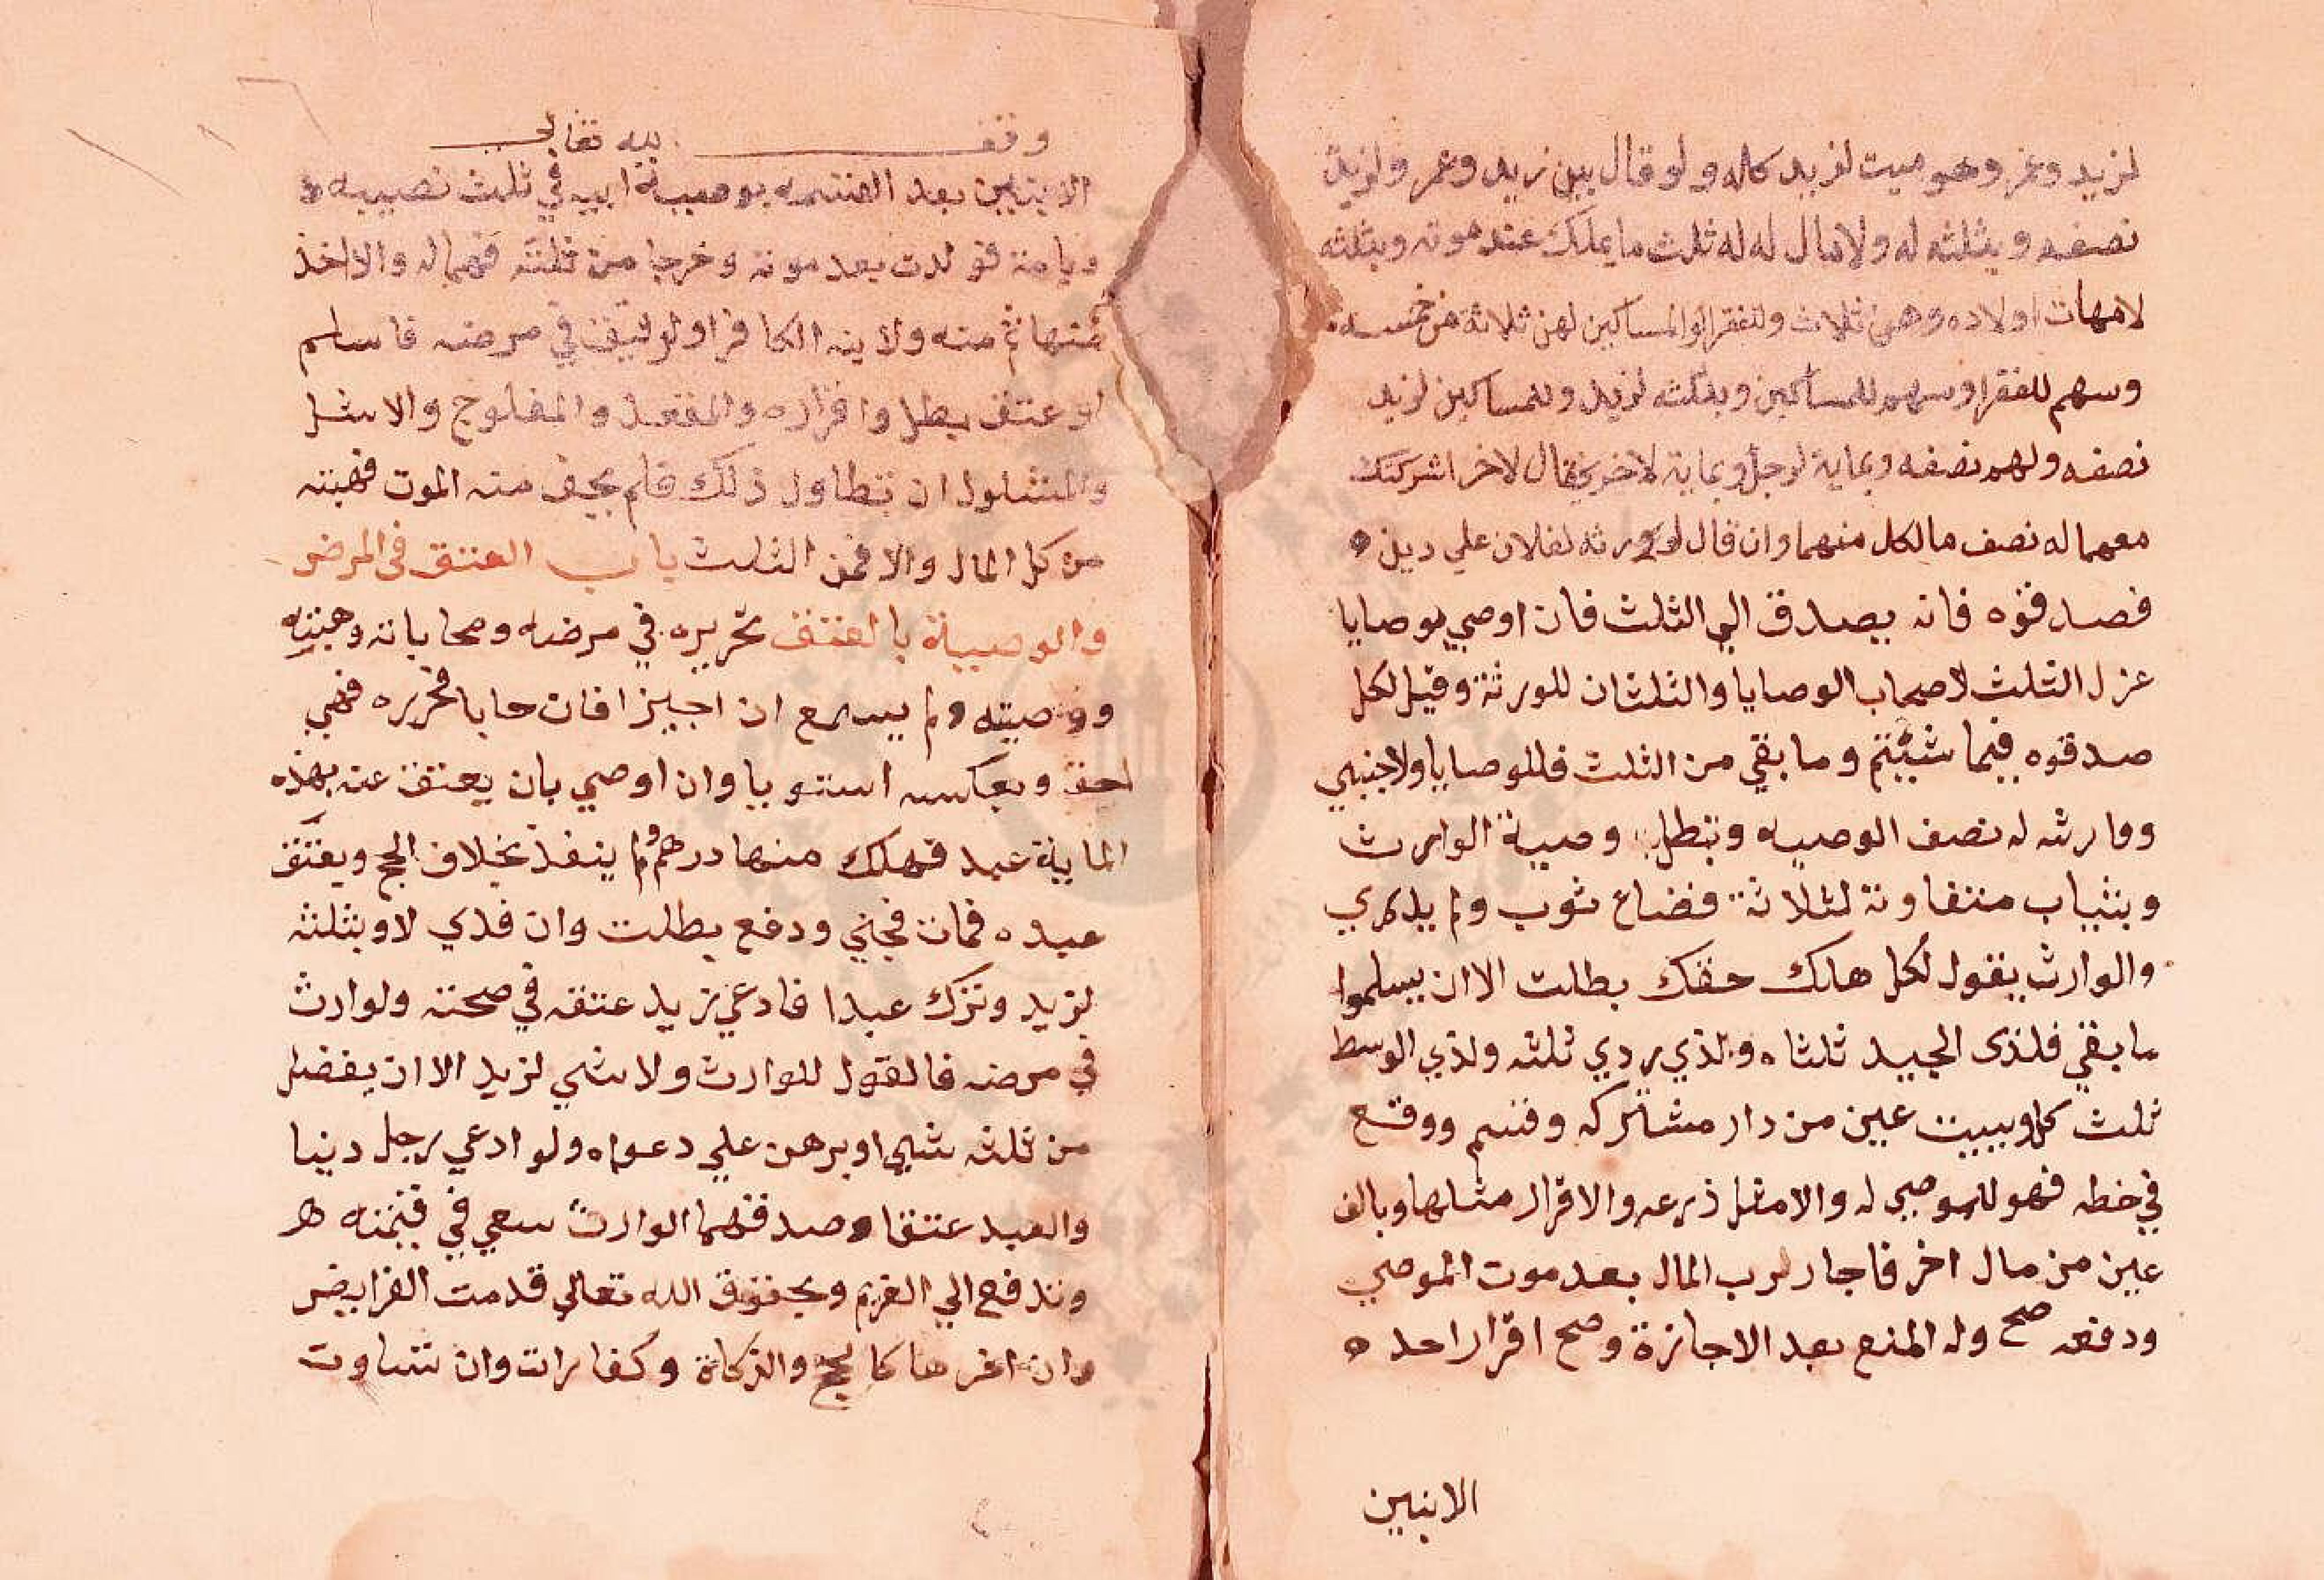 لزيد وعمر وهو ميت لزيد كله ولو قال بين زيد وعمر ولزيد
نصفه وبثلثه له ولا مال له له ثلث ما يملك عند موته وبثلثه
لامهات اولاده وهن ثلاث وللفقرا والمساكين لهن ثلاثة من خمسه
وسهم للفقرا وسهم للمساكين وبثلثه لزيد وللمساكين لزيد
نصفه ولهم نصفه وبماية لرجل وبماية لاخر فقال لاخر اشركتك
معهما له نصف ما لكل منهما وان قال لورثه لفلان علي دين
فصدقوه فانه يصدق الي الثلث فان اوصي بوصايا
عزل الثلث لاصحاب الوصايا والثلثان للورثة وقيل لكل
صدقوه فيما شيتم وما بقي من الثلث فللوصايا ولاجنبي
ووارثه له نصف الوصيه وتبطل وصية الوارث
وبثياب متفاوتة لثلاثة فضاع ثوب ولم يدر اي
والوارث يقول لكل هلك حقك بطلت الا ان يسلموا
ما بقي فلذى الجيد ثلثاه ولذي ردي ثلثه ولذي الوسط
ثلث كل وببيت عين من دار مشتركه وقسم ووقع
في حظه فهو للموصي له والا مثل ذرعه والاقرار مثلها وبالف
عين من مال اخر فاجاز رب المال بعد موت الموصي
ودفعه صح وله المنع بعد الاجازة وصح اقرار احد ه
الابنين
وقف لله تعالى
الابنين بعد القسمه بوصية ابيه في ثلث نصيبه
وبامة فولدت بعد موته وخرجا من ثلثه فهما له والا اخذ
منها ثم منه ولابنه الكافر او لرقيق في مرضه فاسلم
او عتق بطل واقراره والمقعد والمفلوج والاشل
والمسلول ان تطاول ذلك فلم يخف منه الموت فهبته
من كل المال والا فمن الثلث باب العتق فى المرض
والوصية بالعتق تحريره في مرضه ومحاباته وهبته
ووصيته ولم يسع ان اجيز افان حابا فحرره فهي
احق وبعكسه استويا وان اوصي بان يعتق عنه بهذه
الماية عبد فهلك منها درهم لم ينفذ بخلاف الحج وبعتق
عبده فمات فجني ودفع بطلت وان فدي لا وبثلثه
لزيد وترك عبدا فادعي زيد عتقه في صحته ولوارث
في مرضه فالقول للوارث ولا شي لزيد الا ان يفضل
من ثلثه شي او برهن علي دعواه ولو ادعي رجل دينا
والعبد عتقا وصدقهما الوارث سعي في قيمته
وتدفع الي الغريم وبحقوق الله تعالي قدمت الفرايض
وان اخرها كالحج والزكاة وكفارات وان تساوت